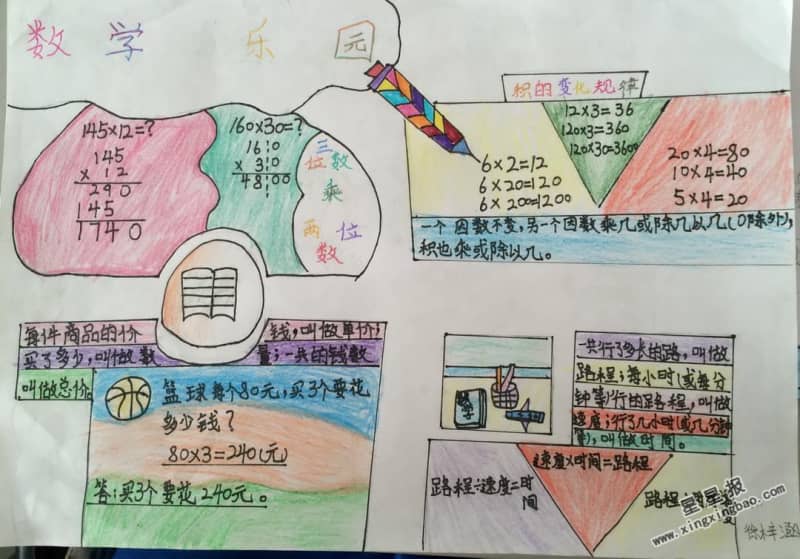 数学乐园
145×12=?
145
× 12
290
145
1740
160×30=?
160
× 30
4800
三
位数
乘
两位
数
积的变化规律
6×2=12
6×20=120
6×200=1200
12×3=36
120×3=360
120×30=3600
20×4=80
10×4=40
5×4=20
一个因数不变,另一个因数乘几或除几以几(0除外),
积也乘或除以几。
每件商品的价钱,叫做单价;
买了多少,叫做数量;一共的钱数
叫做总价。
篮球每个80元,买3个要花
多少钱?
80×3=240(元)
答:买3个要花240元。
数学
一共行了多长的路,叫做
路程;每小时(或每分
钟等)行的路程,叫做
速度;行了几小时(或几分钟
等),叫做时间。
路程÷速度=时
间
速度×时间=路程
路程÷
星星报
www.xingxingbao.com
徐梓涵